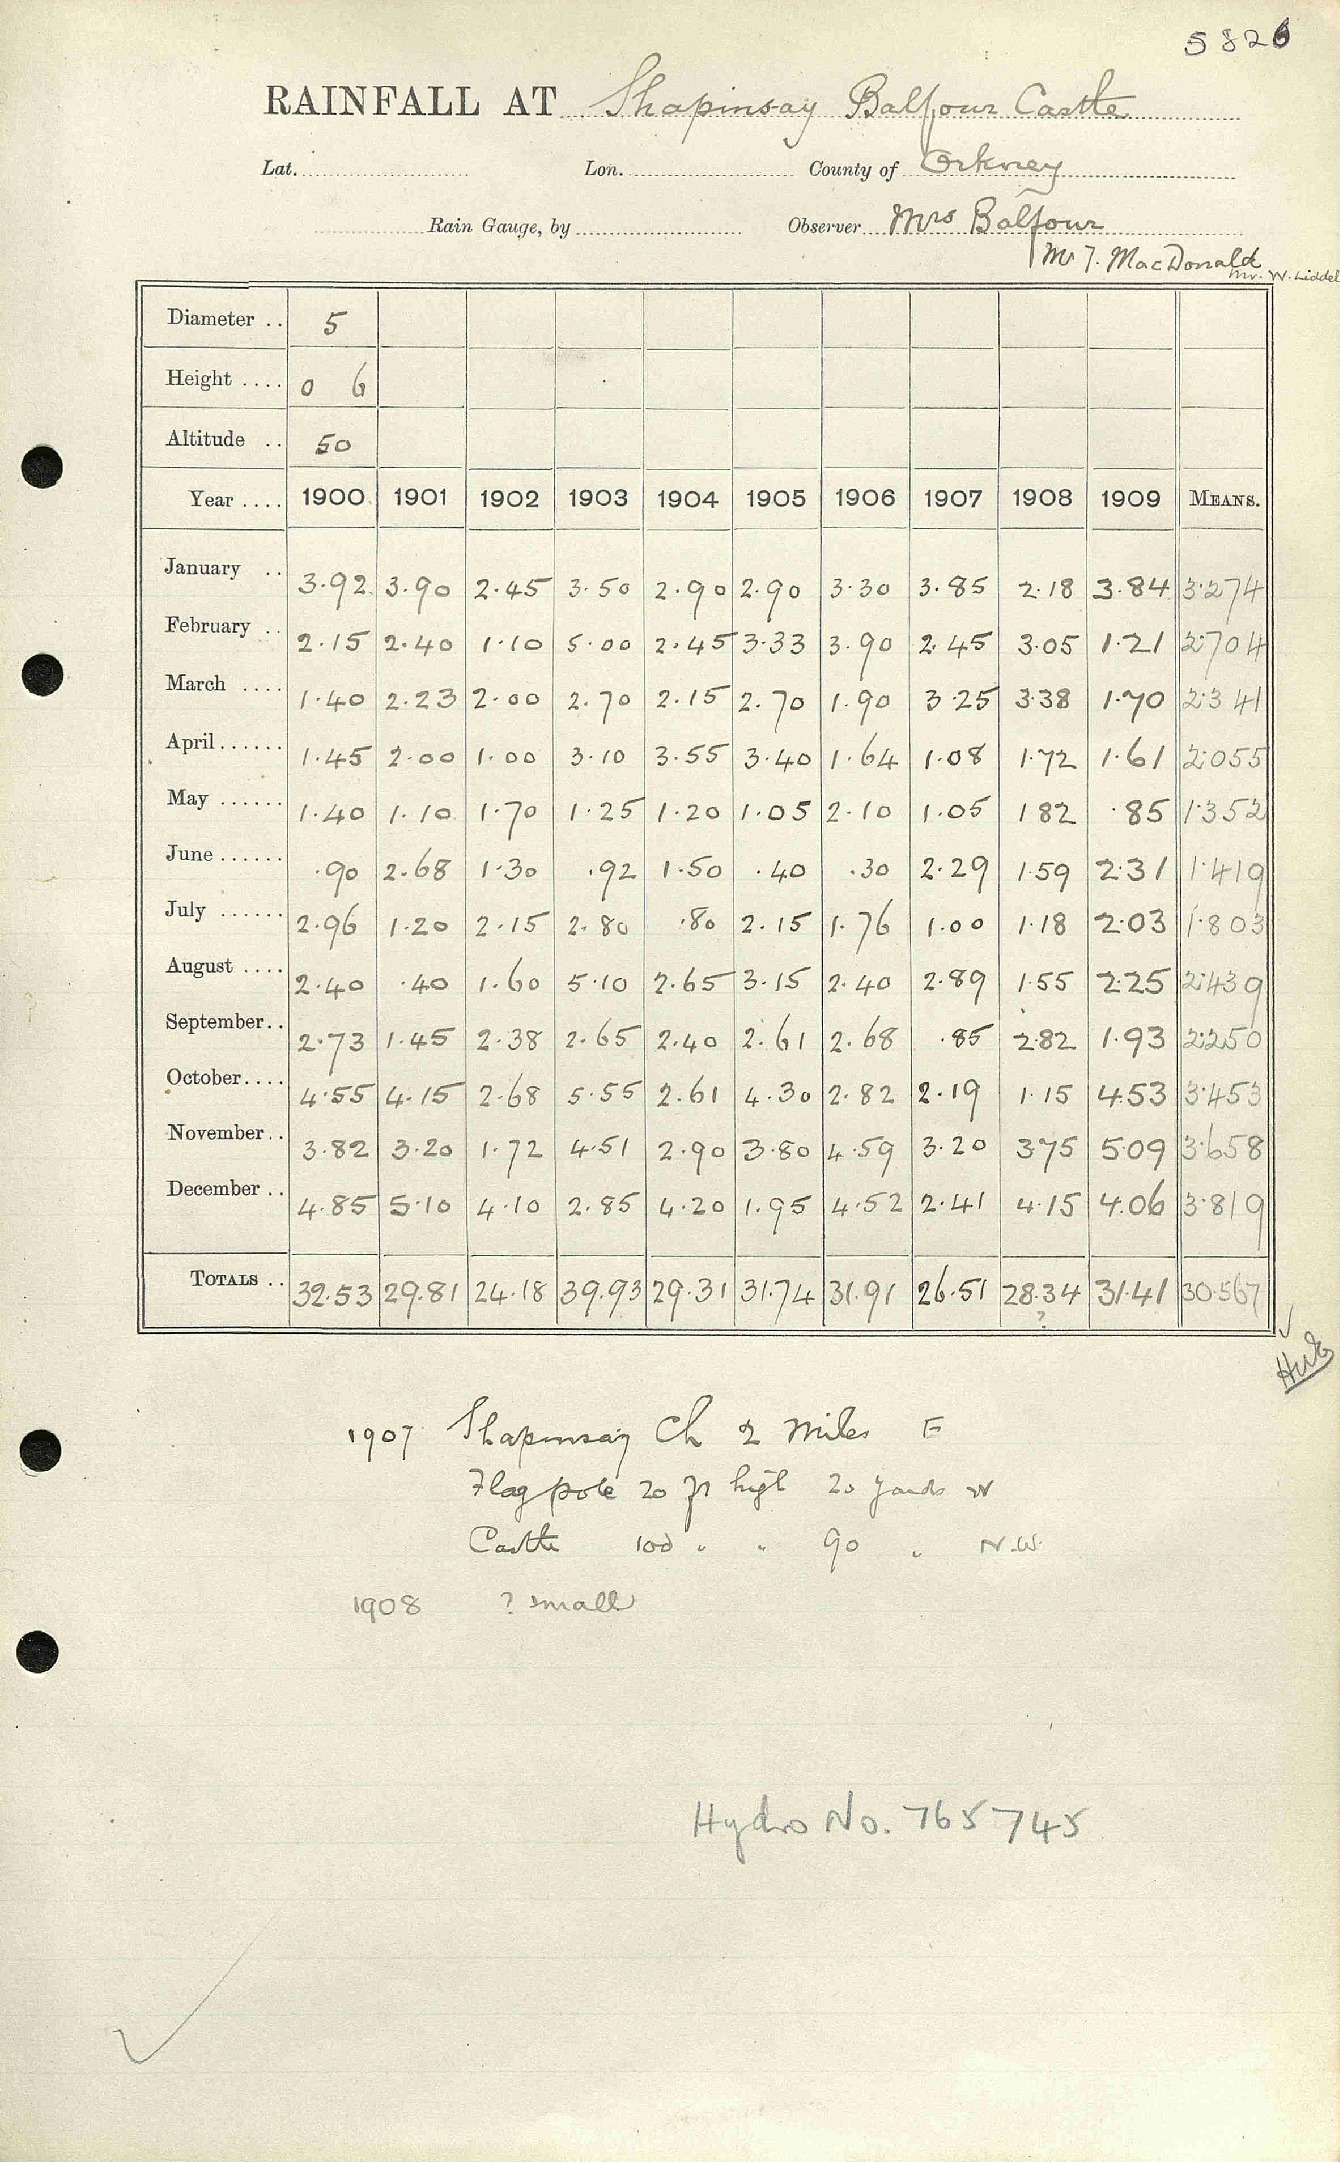 5826
RAINFALL AT Shapinsay Balfour Castle
Lat. Lon. County of Orkney
Rain Gauge, by Observer Mrs Balfour
Mr J. MacDonald
Mr. W. Liddel
Diameter .. 5
Height .... 0 6
Altitude .. 50
Year .... 1900 1901 1902 1903 1904 1905 1906 1907 1908 1909 MEANS.
January .. 3.92 3.90 2.45 3.50 2.90 2.90 3.30 3.85 2.18 3.84 3.274
February .. 2.15 2.40 1.10 5.00 2.45 3.33 3.90 2.45 3.05 1.21 2.704
March .... 1.40 2.23 2.00 2.70 2.15 2.70 1.90 3.25 3.38 1.70 2.341
April ...... 1.45 2.00 1.00 3.10 3.55 3.40 1.64 1.08 1.72 1.61 2.055
May ...... 1.40 1.10 1.70 1.25 1.20 1.05 2.10 1.05 1 82 .85 1.352
June ...... .90 2.68 1.30 .92 1.50 .40 .30 2.29 1.59 2.31 1.419
July ...... 2.96 1.20 2.15 2.80 .80 2.15 1.76 1.00 1.18 2.03 1.803
August .... 2.40 .40 1.60 5.10 2.65 3.15 2.40 2.89 1.55 2.25 2.439
September .. 2.73 1.45 2.38 2.65 2.40 2.61 2.68 .85 2.82 1.93 2.250
October .... 4.55 4.15 2.68 5.55 2.61 4.30 2.82 2.19 1.15 4.53 3.453
November .. 3.82 3.20 1.72 4.51 2.90 3.80 4.59 3.20 3.75 5.09 3.658
December .. 4.85 5.10 4.10 2.85 4.20 1.95 4.52 2.41 4.15 4.06 3.819
TOTALS .. 32.53 29.81 24.18 39.93 29.31 31.74 31.91 26.51 28.34 31.41 30.567
?
1907 Shapinsay Ch 2 miles E
Flag pole 20 ft high 20 yards W
Castle 100 " " 90 " N.W.
1908 ? small
Hydro No. 765745